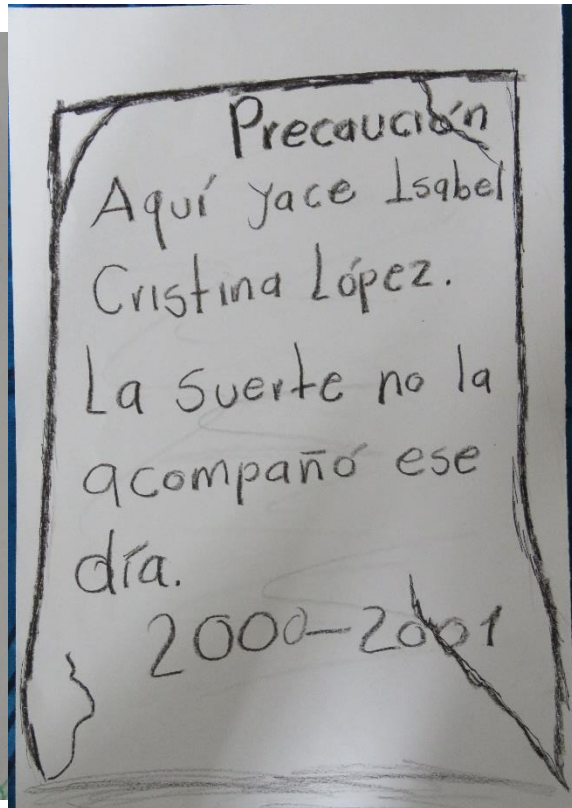 Precaución
Aquí yace Isabel
Cristina López.
La suerte no la
acompañó ese
día.
2000-2001